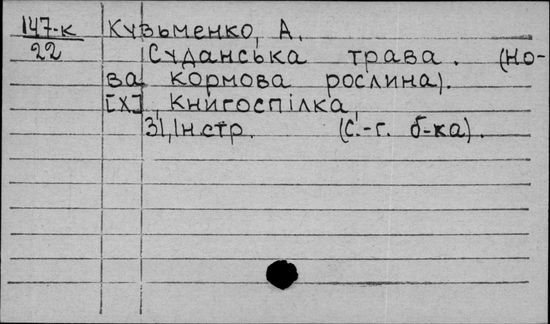 147-к Кузьменко, А.
22 Суданська трава. (Но-
ва кормова рослина).
[Х], Книгоспілка,
31, Ін.стр. (С.-г. б-ка).